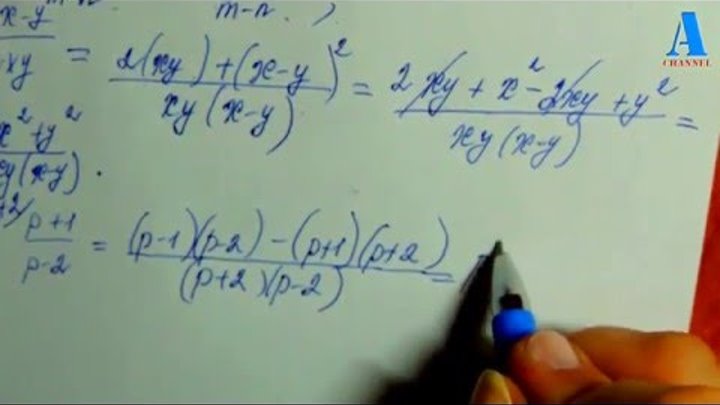 m-n )
x-y / xy = 2(xy)+(x-y)² / xy(x-y) = 2xy + x² - 2xy + y² / xy(x-y) =
x²+y² / xy(x-y) .
p+1 / p-2 = (p-1)(p-2) - (p+1)(p+2) / (p+2)(p-2) =
A
CHANNEL